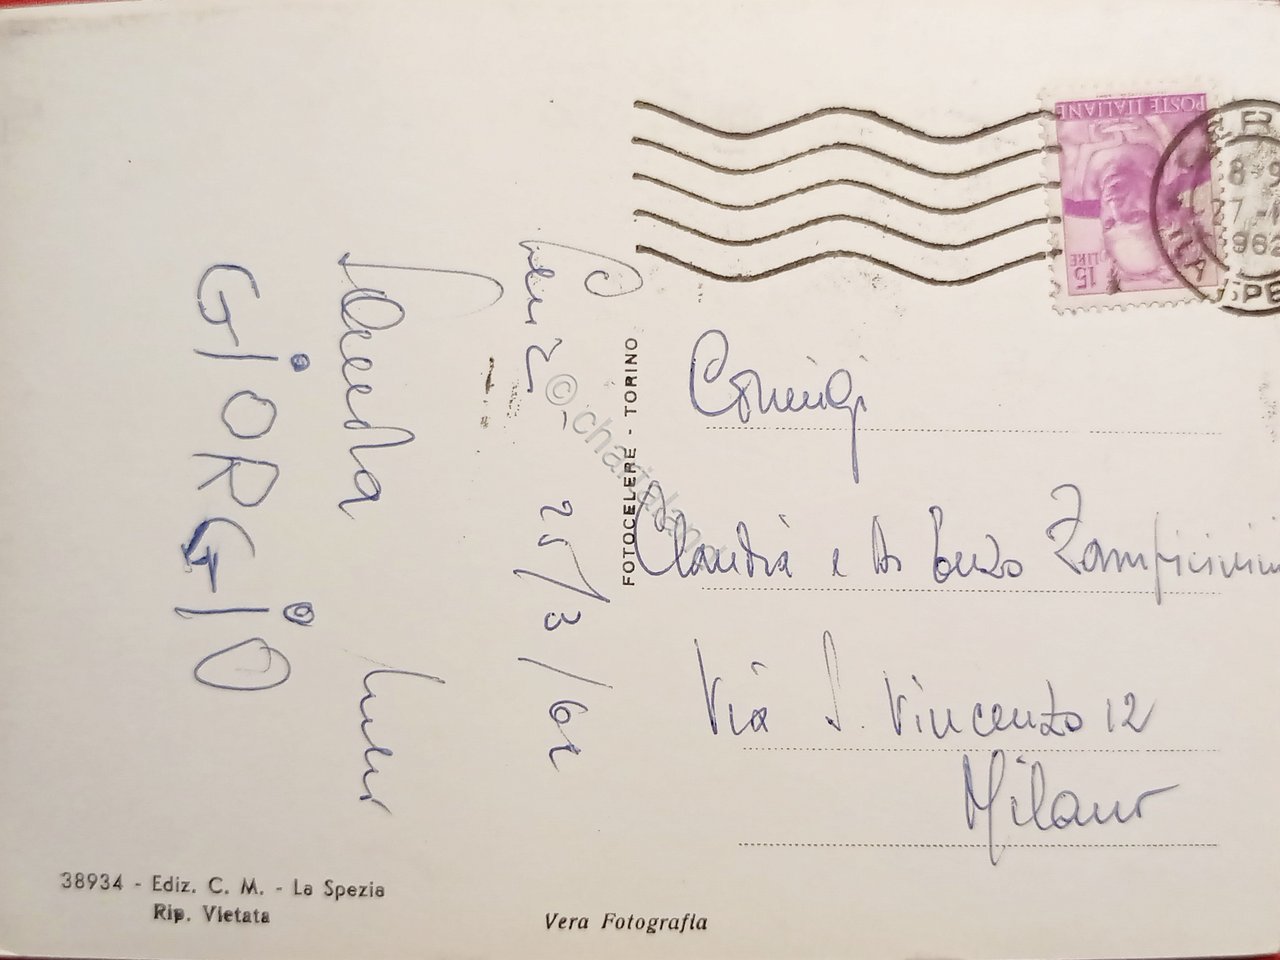 POSTE ITALIANE
LIRE 15
8-9
27
962
SPE
Lerici, 25/3/62
GIORGIO
FOTOCELERE - TORINO
Coniugi
Claudia e Enzo
Via S. Vincenzo 12
Milano
38934 - Ediz. C. M. - La Spezia
Rip. Vietata
Vera Fotografia